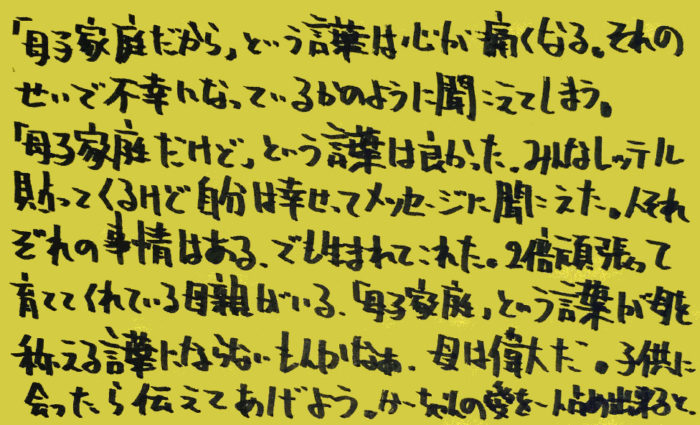 「母子家庭だから」という言葉は心が痛くなる。それの
せいで不幸になっているかのように聞こえてしまう。
「母子家庭だけど」という言葉は良かった。みんなレッテル
貼ってくるけど自分は幸せってメッセージに聞こえた。人それ
ぞれの事情はある、でも生まれてこれた。2倍頑張って
育ててくれている母親がいる、「母子家庭」という言葉が母を
称える言葉にならないもんかなぁ、母は偉大だ。子供に
会ったら伝えてあげよう。かーちゃんの愛を一人占め出来ると。